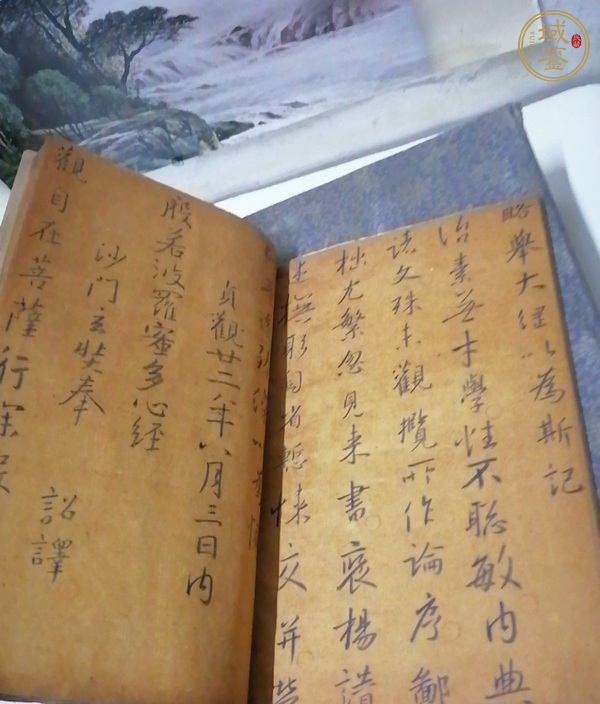 略舉大經以為斯記
治素無才學性不聰敏內典
諸文殊未觀攬所作論序鄙
拙尤繁忽見来書褒揚讃
述撫躬自省慙悚交并勞
貞觀廿二年八月三日內
般若波羅蜜多心經
沙門玄奘奉 詔譯
觀自在菩薩行深般
域鉴